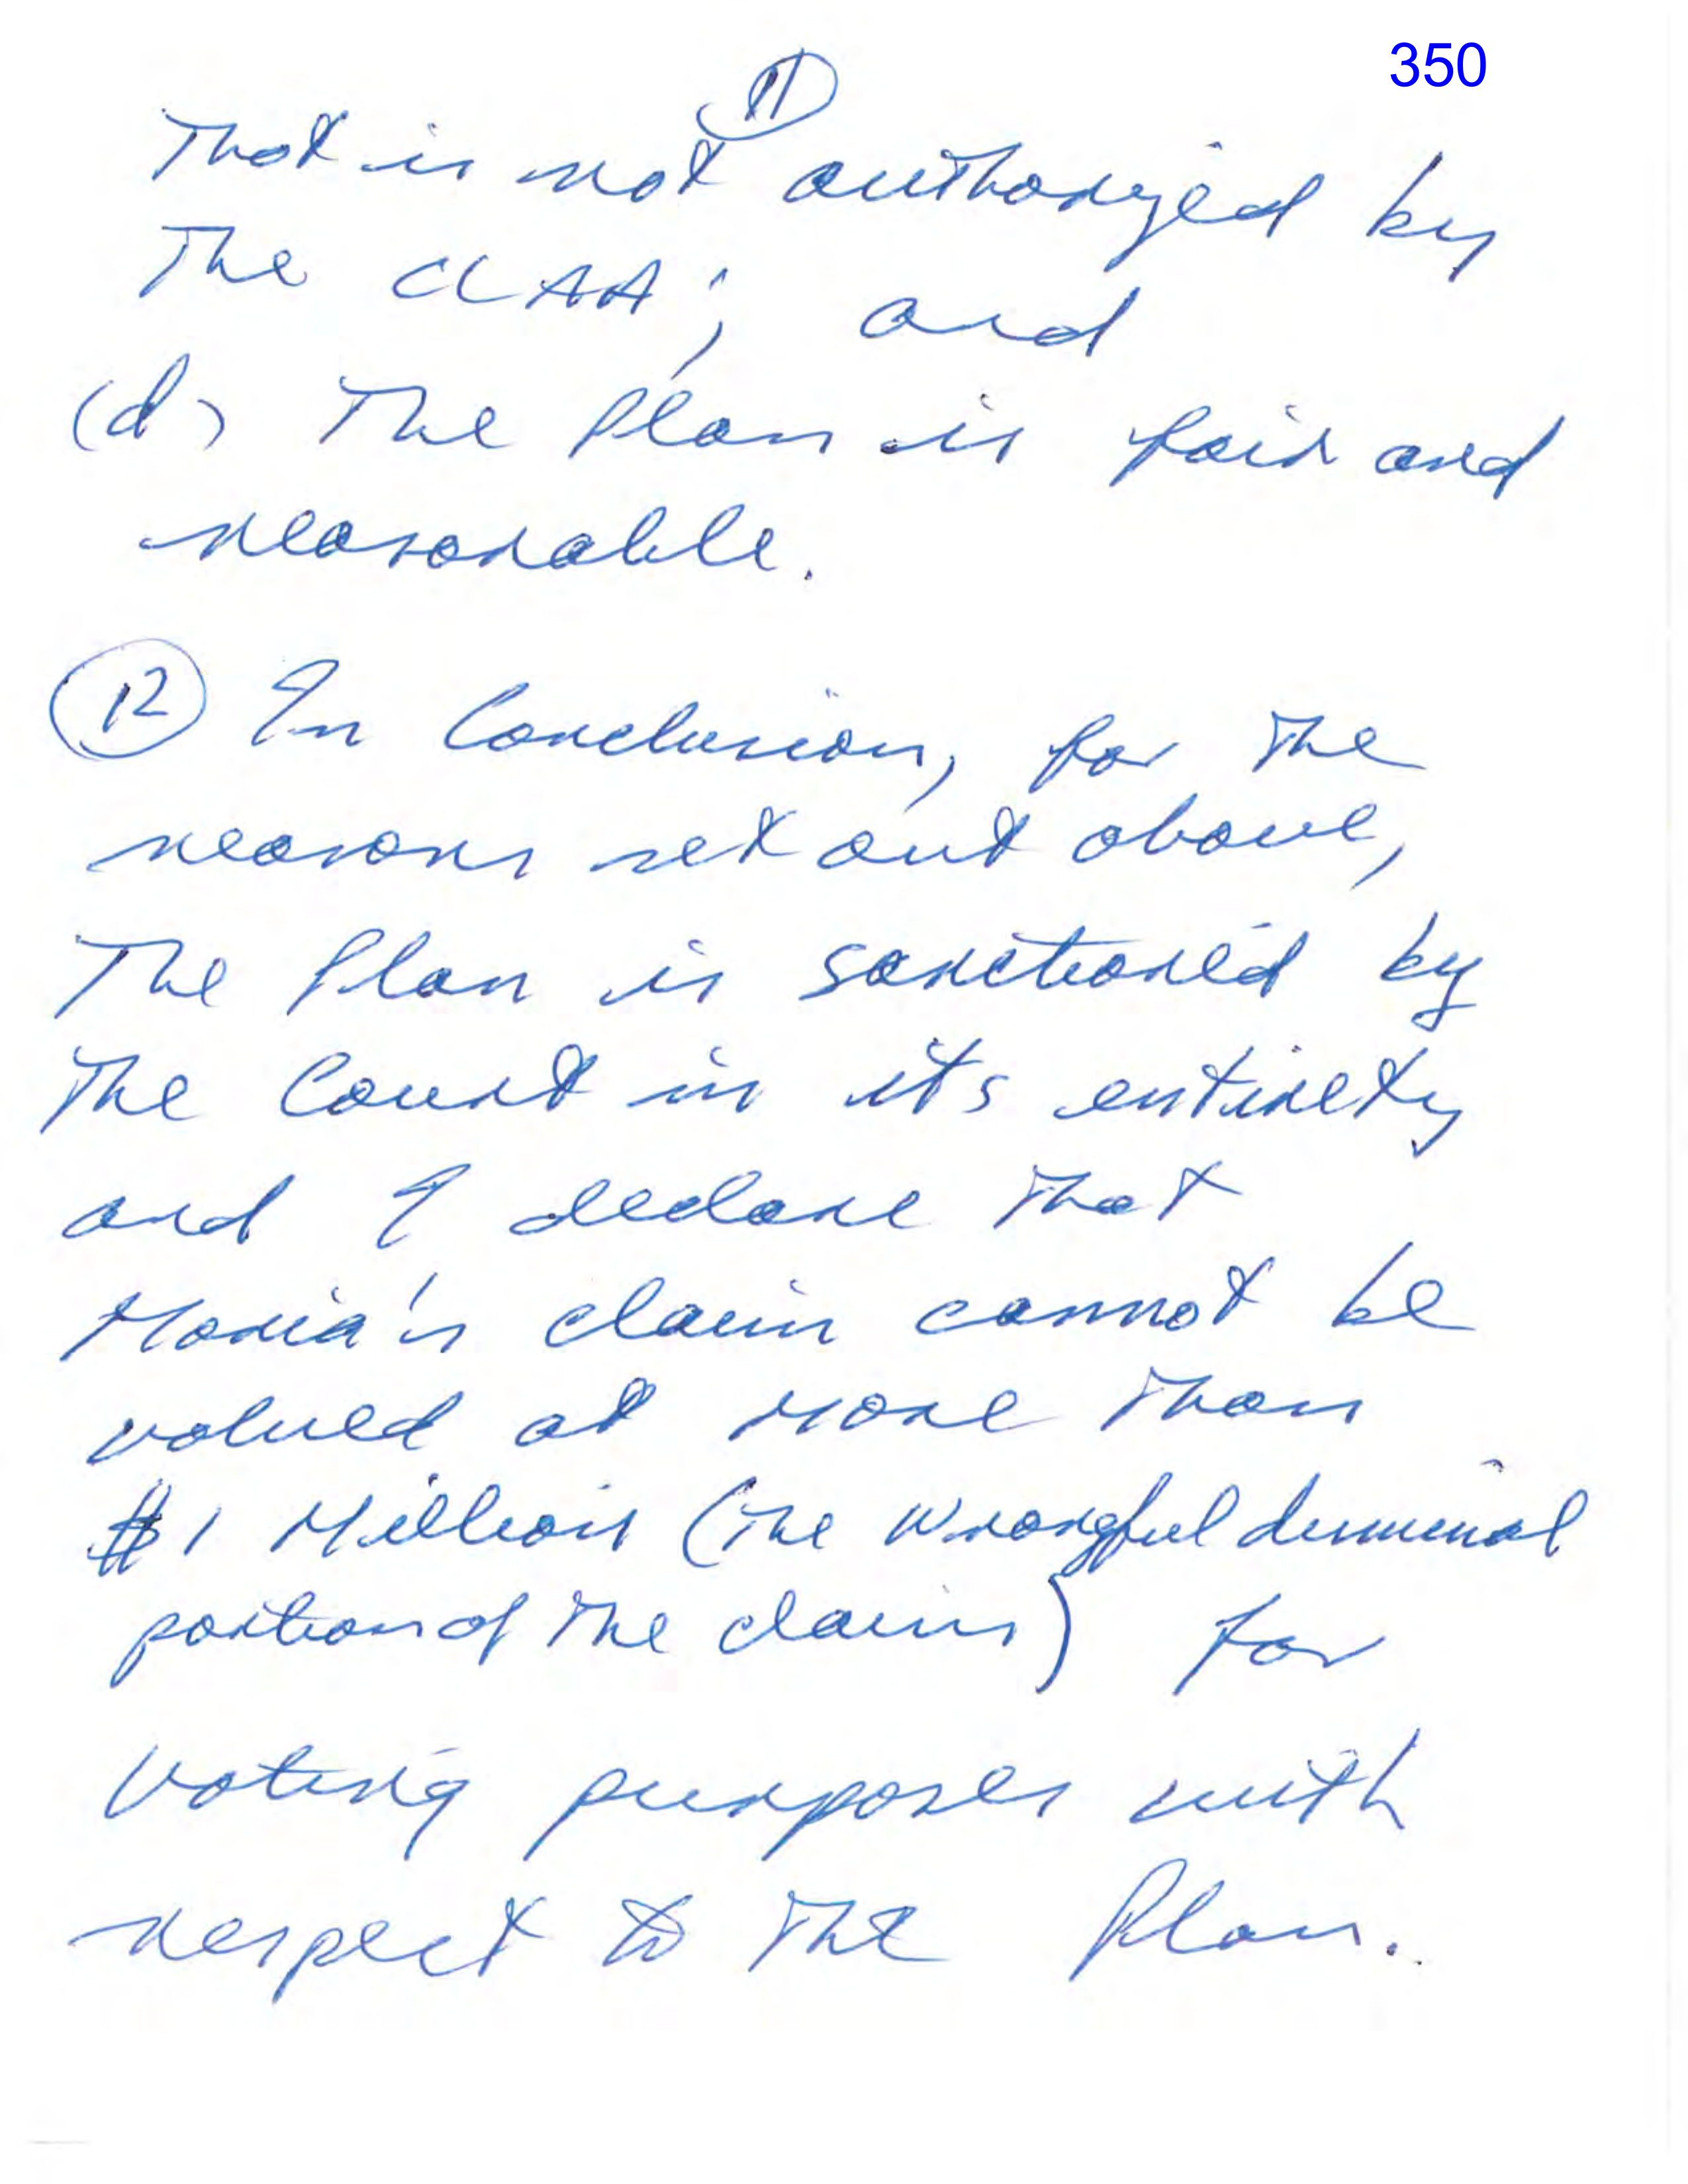 350
11
That is not authorized by
the CCAA; and
(d) The Plan is fair and
reasonable.
12 In Conclusion, for the
reasons set out above,
the Plan is sanctioned by
the Court in it's entirety
and I declare that
Maria's claim cannot be
valued at more than
$1 Million (the wrongful dismissal
portion of the claim) for
voting purposes with
respect to the Plan.